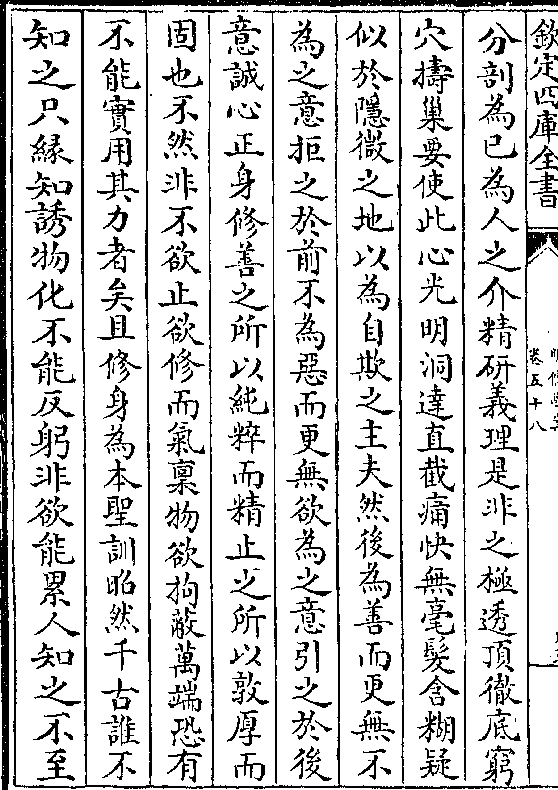 欽定四庫全書
卷五十八
分剖為已為人之介精研義理是非之極透頂徹底窮
穴擣巢要使此心光明洞達直截痛快無毫髮含糊疑
似於隱微之地以為自欺之主夫然後為善而更無不
為之意拒之於前不為惡而更無欲為之意引之於後
意誠心正身修善之所以純粹而精止之所以敦厚而
固也不然非不欲止欲修而氣稟物欲拘蔽萬端恐有
不能實用其力者矣且修身為本聖訓昭然千古誰不
知之只緣知誘物化不能反躬非欲能累人知之不至